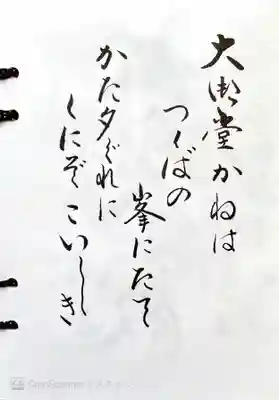 大御堂かねは
つくばの
峯にたて
かた夕ぐれに
くにぞこいしき
CamScanner